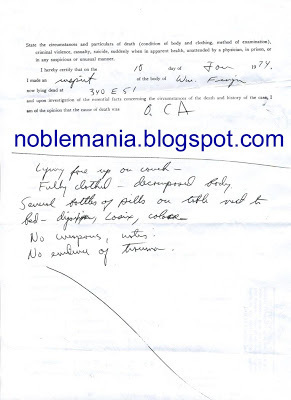 State the circumstances and particulars of death (condition of body and clothing, method of examination),
criminal violence, casualty, suicide, suddenly when in apparent health, unattended by a physician, in prison, or
in any suspicious or unusual manner.
I hereby certify that on the 10 day of Jan 1974.
I made an inspect of the body of Wm.
now lying dead at 340 E 51
and upon investigation of the essential facts concerning the circumstances of the death and history of the case, I
am of the opinion that the cause of death was O. C A
noblemania.blogspot.com
Lying face up on couch -
Fully clothed - decomposed body
Several bottles of pills on table next to
bed - Lasix,
No weapons, notes.
No evidence of trauma.